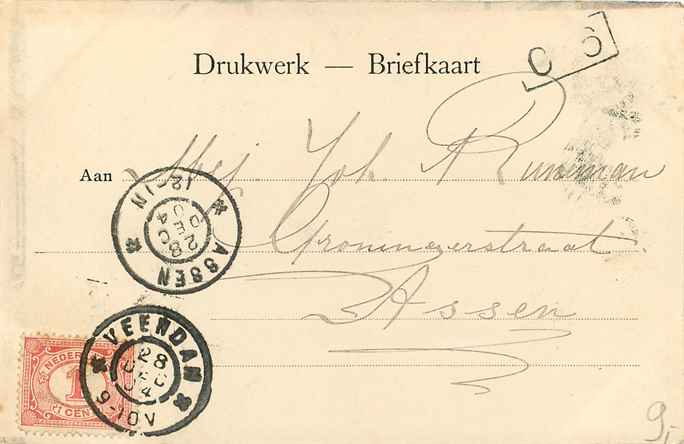 Drukwerk — Briefkaart
C 6
Aan Mej. Joh. Runeman
Groningerstraat
Assen
ASSEN
28 DEC 04
12-1N
VEENDAM
28 DEC 04
9-10V
NEDER
1
CENT
9,-